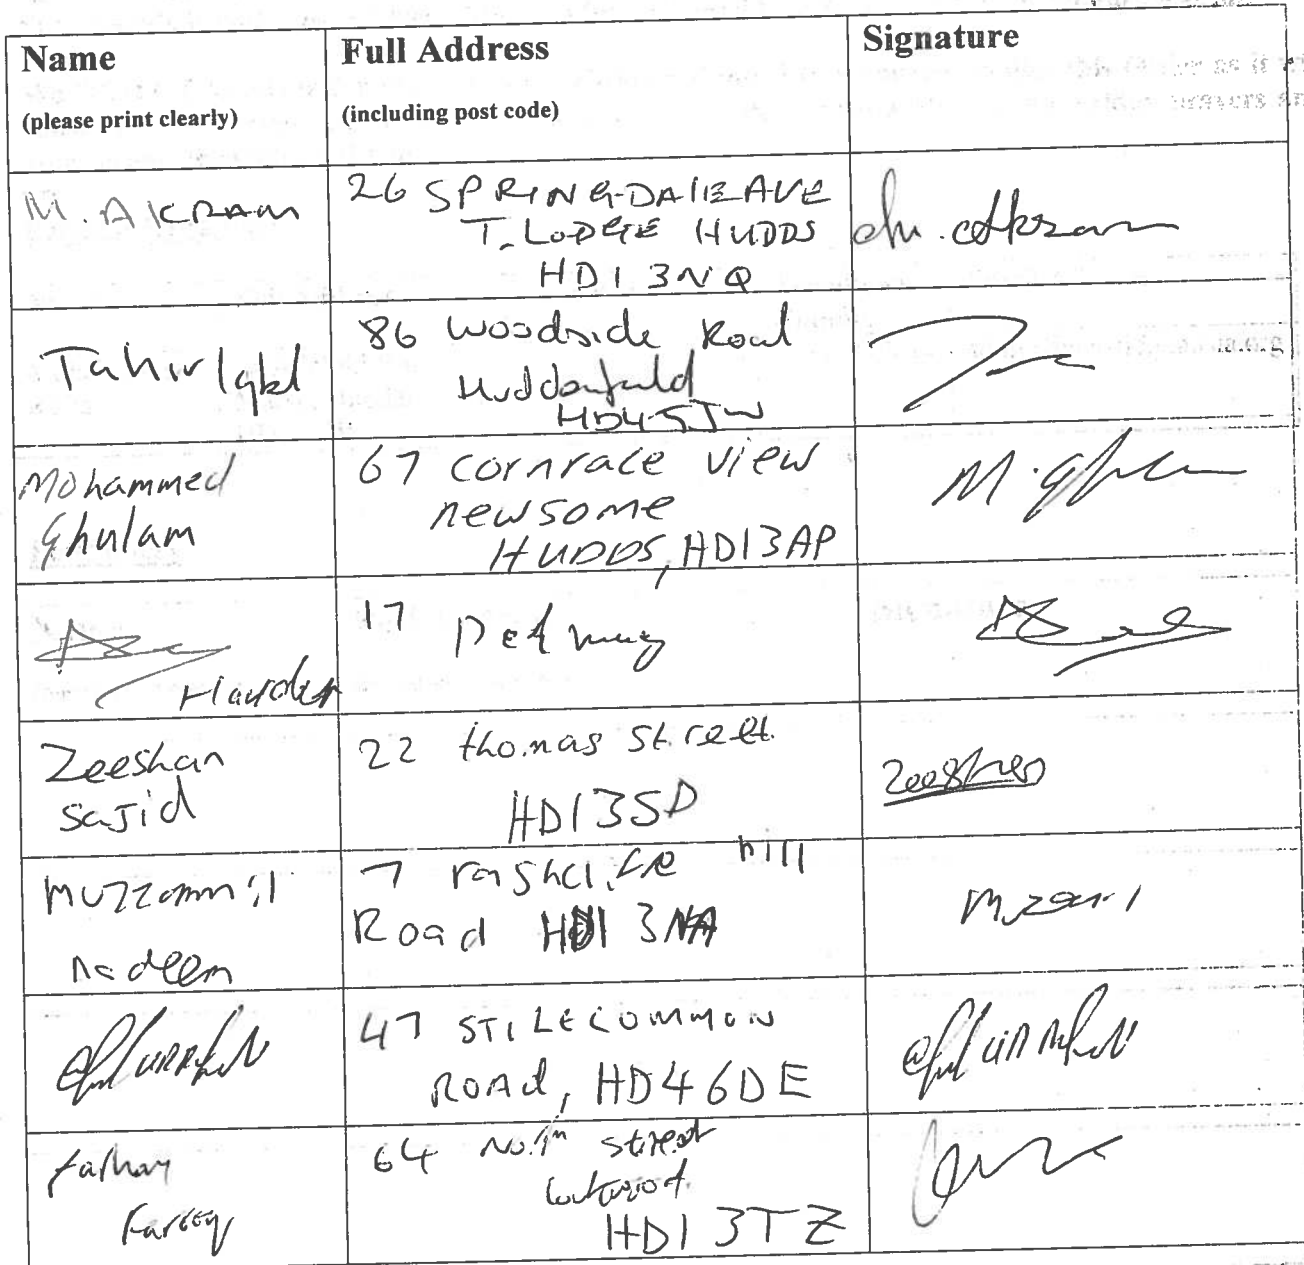 Name
(please print clearly)
Full Address
(including post code)
Signature
M. AKRAM
26 SPRINGDALE AVE
T. LODGE HUDDS
HD1 3NQ
M. Akram
Tahir Iqbl
86 Woodside Road
Huddersfield
HD4 5JW
Mohammed
Ghulam
67 cornrace view
newsome
HUDDS, HD13AP
17
Zeeshan
Sajid
22 thomas street
HD13SD
Zeeshan
Muzzammil
nadeem
7 rashcliffe hill
Road HD1 3NA
47 STILECOMMON
ROAD, HD46DE
Farooq
64 North street
Lockwood
HD1 3TZ